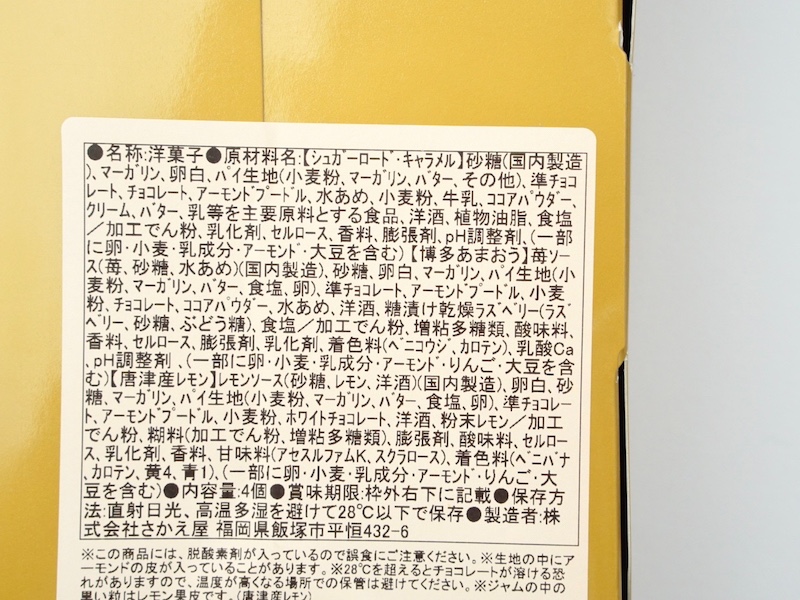 ●名称:洋菓子●原材料名:【シュガーロード・キャラメル】砂糖(国内製造
)、マーガリン、卵白、パイ生地(小麦粉、マーガリン、バター、その他)、準チョコ
レート、チョコレート、アーモンドプードル、水あめ、小麦粉、牛乳、ココアパウダー、
クリーム、バター、乳等を主要原料とする食品、洋酒、植物油脂、食塩
/加工でん粉、乳化剤、セルロース、香料、膨張剤、pH調整剤、(一部
に卵・小麦・乳成分・アーモンド・大豆を含む)【博多あまおう】苺ソー
ス(苺、砂糖、水あめ)(国内製造)、砂糖、卵白、マーガリン、パイ生地(小
麦粉、マーガリン、バター、食塩、卵)、準チョコレート、アーモンドプードル、小麦
粉、チョコレート、ココアパウダー、水あめ、洋酒、糖漬け乾燥ラズベリー(ラズ
ベリー、砂糖、ぶどう糖)、食塩/加工でん粉、増粘多糖類、酸味料、
香料、セルロース、膨張剤、乳化剤、着色料(ベニコウジ、カロテン)、乳酸Ca
、pH調整剤、(一部に卵・小麦・乳成分・アーモンド・りんご・大豆を含
む)【唐津産レモン】レモンソース(砂糖、レモン、洋酒)(国内製造)、卵白、砂
糖、マーガリン、パイ生地(小麦粉、マーガリン、バター、食塩、卵)、準チョコレー
ト、アーモンドプードル、小麦粉、ホワイトチョコレート、洋酒、粉末レモン/加工
でん粉、糊料(加工でん粉、増粘多糖類)、膨張剤、酸味料、セルロー
ス、乳化剤、香料、甘味料(アセスルファムK、スクラロース)、着色料(ベニバナ
、カロテン、黄4、青1)、(一部に卵・小麦・乳成分・アーモンド・りんご・大
豆を含む)●内容量:4個●賞味期限:枠外右下に記載●保存方
法:直射日光、高温多湿を避けて28℃以下で保存●製造者:株
式会社さかえ屋 福岡県飯塚市平恒432-6
※この商品には、脱酸素剤が入っているので誤食にご注意ください。※生地の中にア
ーモンドの皮が入っていることがあります。※28℃を超えるとチョコレートが溶ける恐
れがありますので、温度が高くなる場所での保管は避けてください。※ジャムの中の
黒い粒はレモン果皮です。(唐津産レモン)